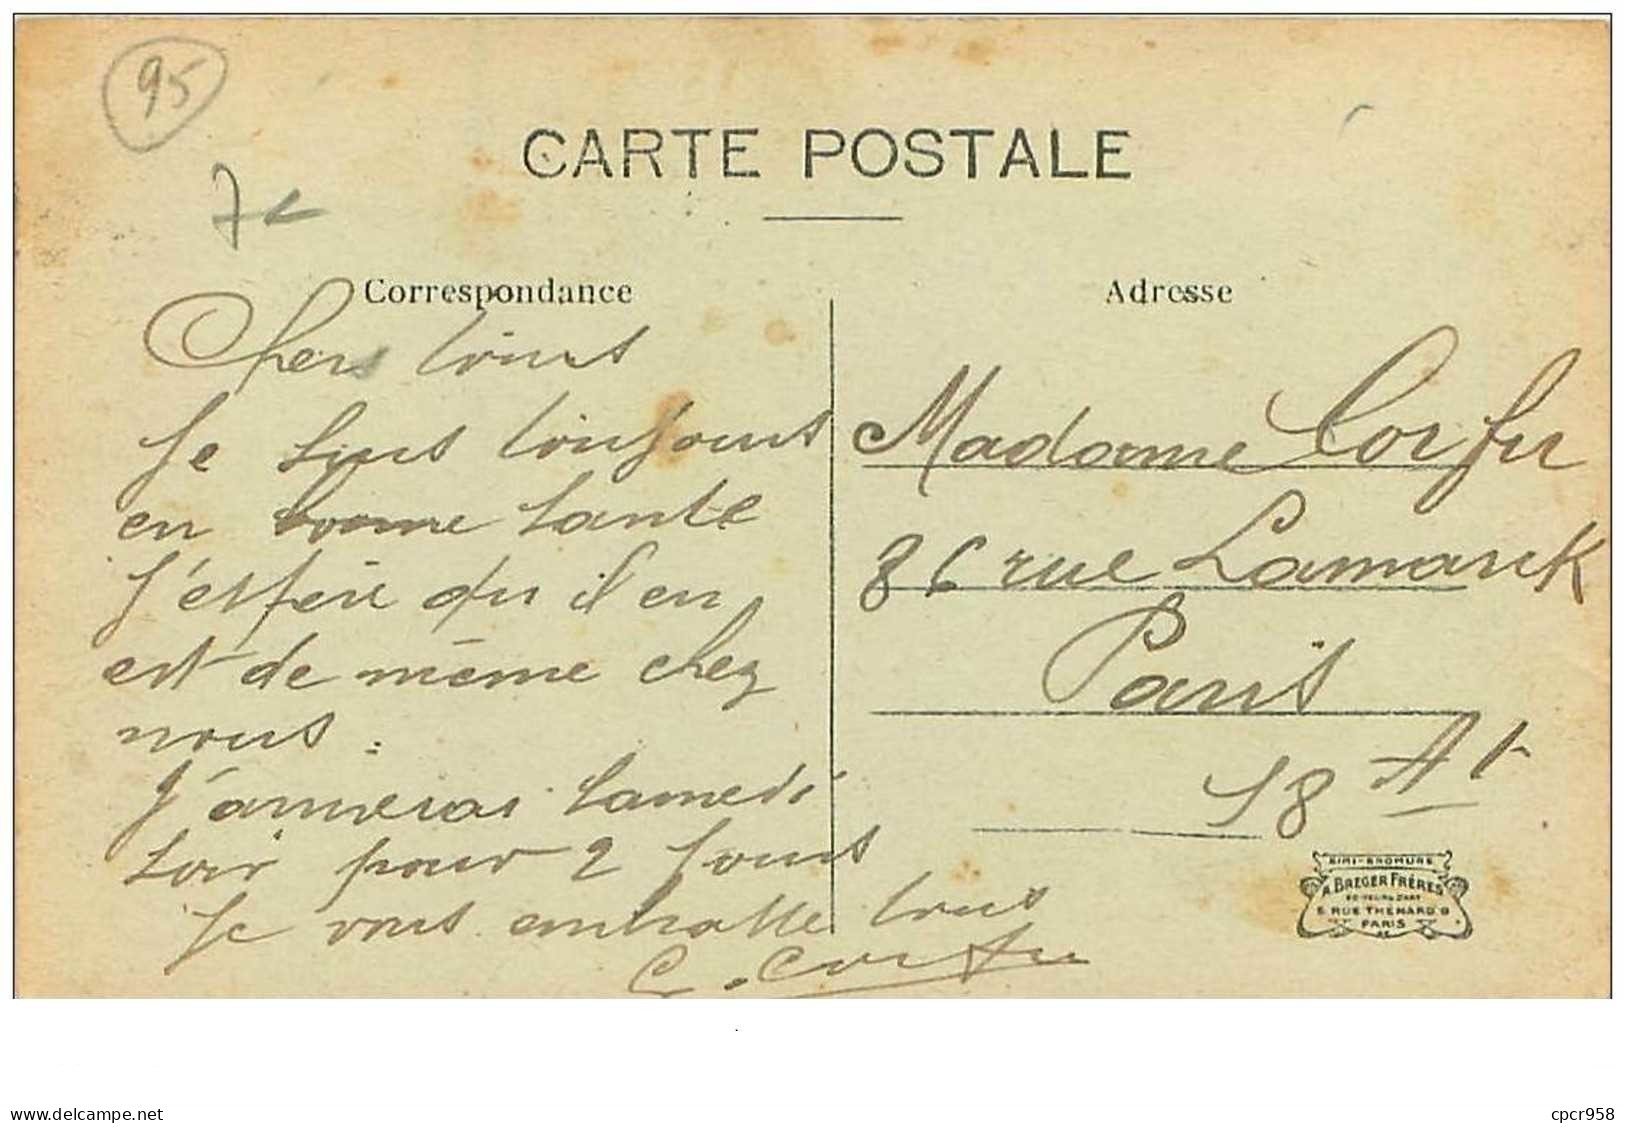 95
CARTE POSTALE
Correspondance
Chers tous
Je suis toujours
en bonne sante
j'espere qu il en
est de même chez
nous.
J'arriverai samedi
soir pour 2 jours
Je vous embrasse tous
C. Corfu
Adresse
Madame Corfu
86 rue Lamarck
Paris
18 At
SIMI-BROMURE
A. BREGER FRÈRES
9 RUE THENARD 9
PARIS
www.delcampe.net
cpcr958